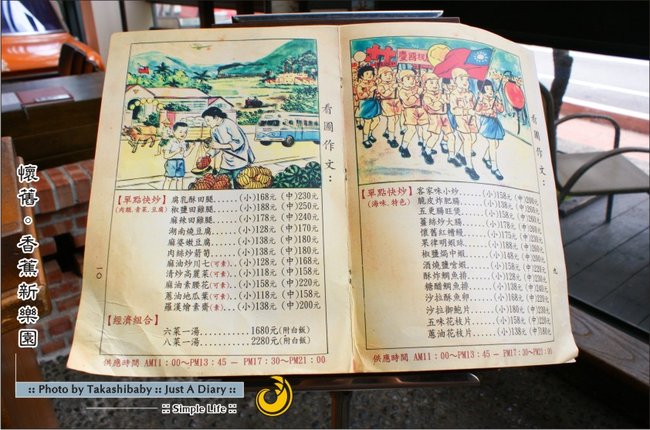 懷舊。香蕉新樂園
看圖作文：
【單點快炒】
(肉類,青菜,豆腐)
腐乳酥田腿.....(小)168元 (中)230元
椒鹽田雞腿.....(小)188元 (中)250元
麻辣田雞腿.....(小)178元 (中)240元
湖南燒豆腐.....(小)128元 (中)170元
麻婆嫩豆腐.....(小)138元 (中)180元
肉絲炒箭筍.....(小)138元 (中)180元
麻油炒川七(可素)...(小)128元 (中)168元
清炒高麗菜(可素)...(小)118元 (中)158元
麻油素腰花(可素)...(小)158元 (中)220元
蔥油地瓜葉(可素)...(小)118元 (中)158元
羅漢燴素齋(素)...(小)138元 (中)200元
【經濟組合】
六菜一湯..........1680元(附白飯)
八菜一湯..........2280元(附白飯)
供應時間 AM11：00～PM13：45 － PM17：30～PM21：00
10
慶國祝
看圖作文：
【單點快炒】
(海味,特色)
客家味小炒
脆皮炸肥腸
五更腸旺煲
薑絲炒大腸
懷舊紅糟鰻
果律明蝦球
椒鹽焗中蝦
酒燒鹽嗆蝦
酥炸鯛魚排
糖醋鯛魚排
沙拉酥魚卵
沙拉御鮑片
五味花枝片
蔥油花枝片
供應時間 AM11：00～PM13：45 － PM17：30～PM21：00
九
:: Photo by Takashibaby :: Just A Diary ::
:: Simple Life ::